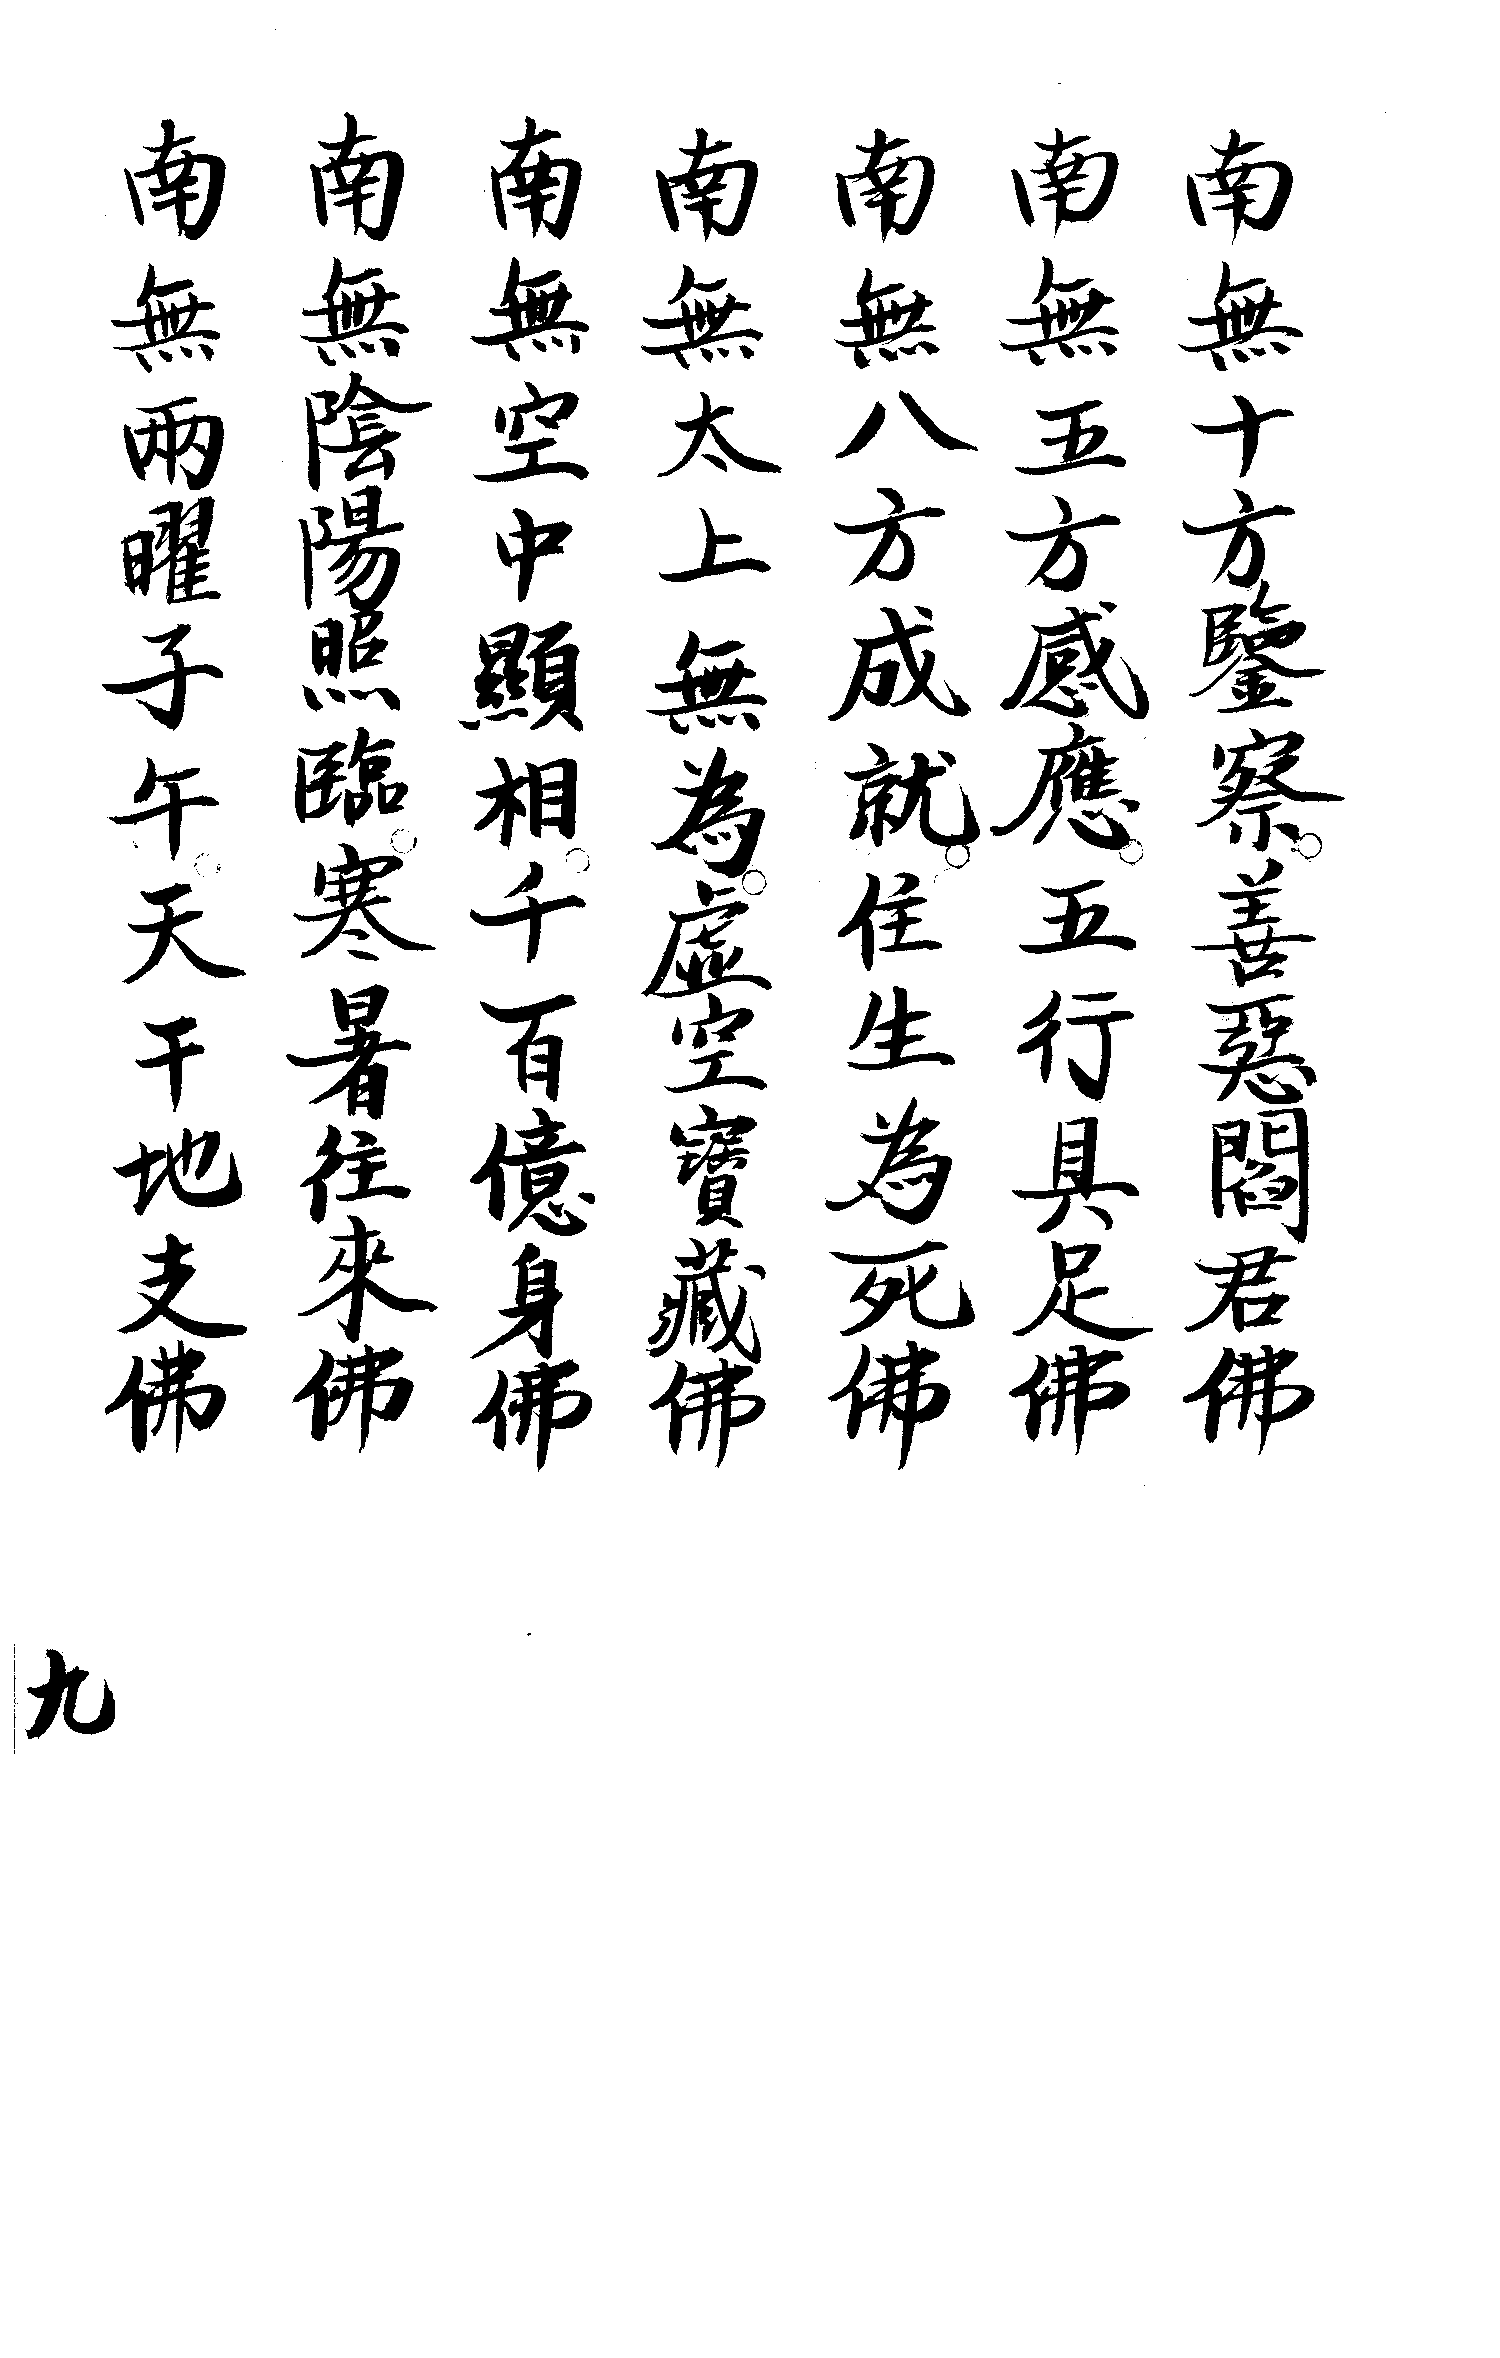 南無十方鑒察。善惡閻君佛
南無五方感應。五行具足佛
南無八方成就。住生為死佛
南無太上無為。虛空寶藏佛
南無空中顯相。千百億身佛
南無陰陽照臨。寒暑往來佛
南無兩曜子午。天干地支佛
九